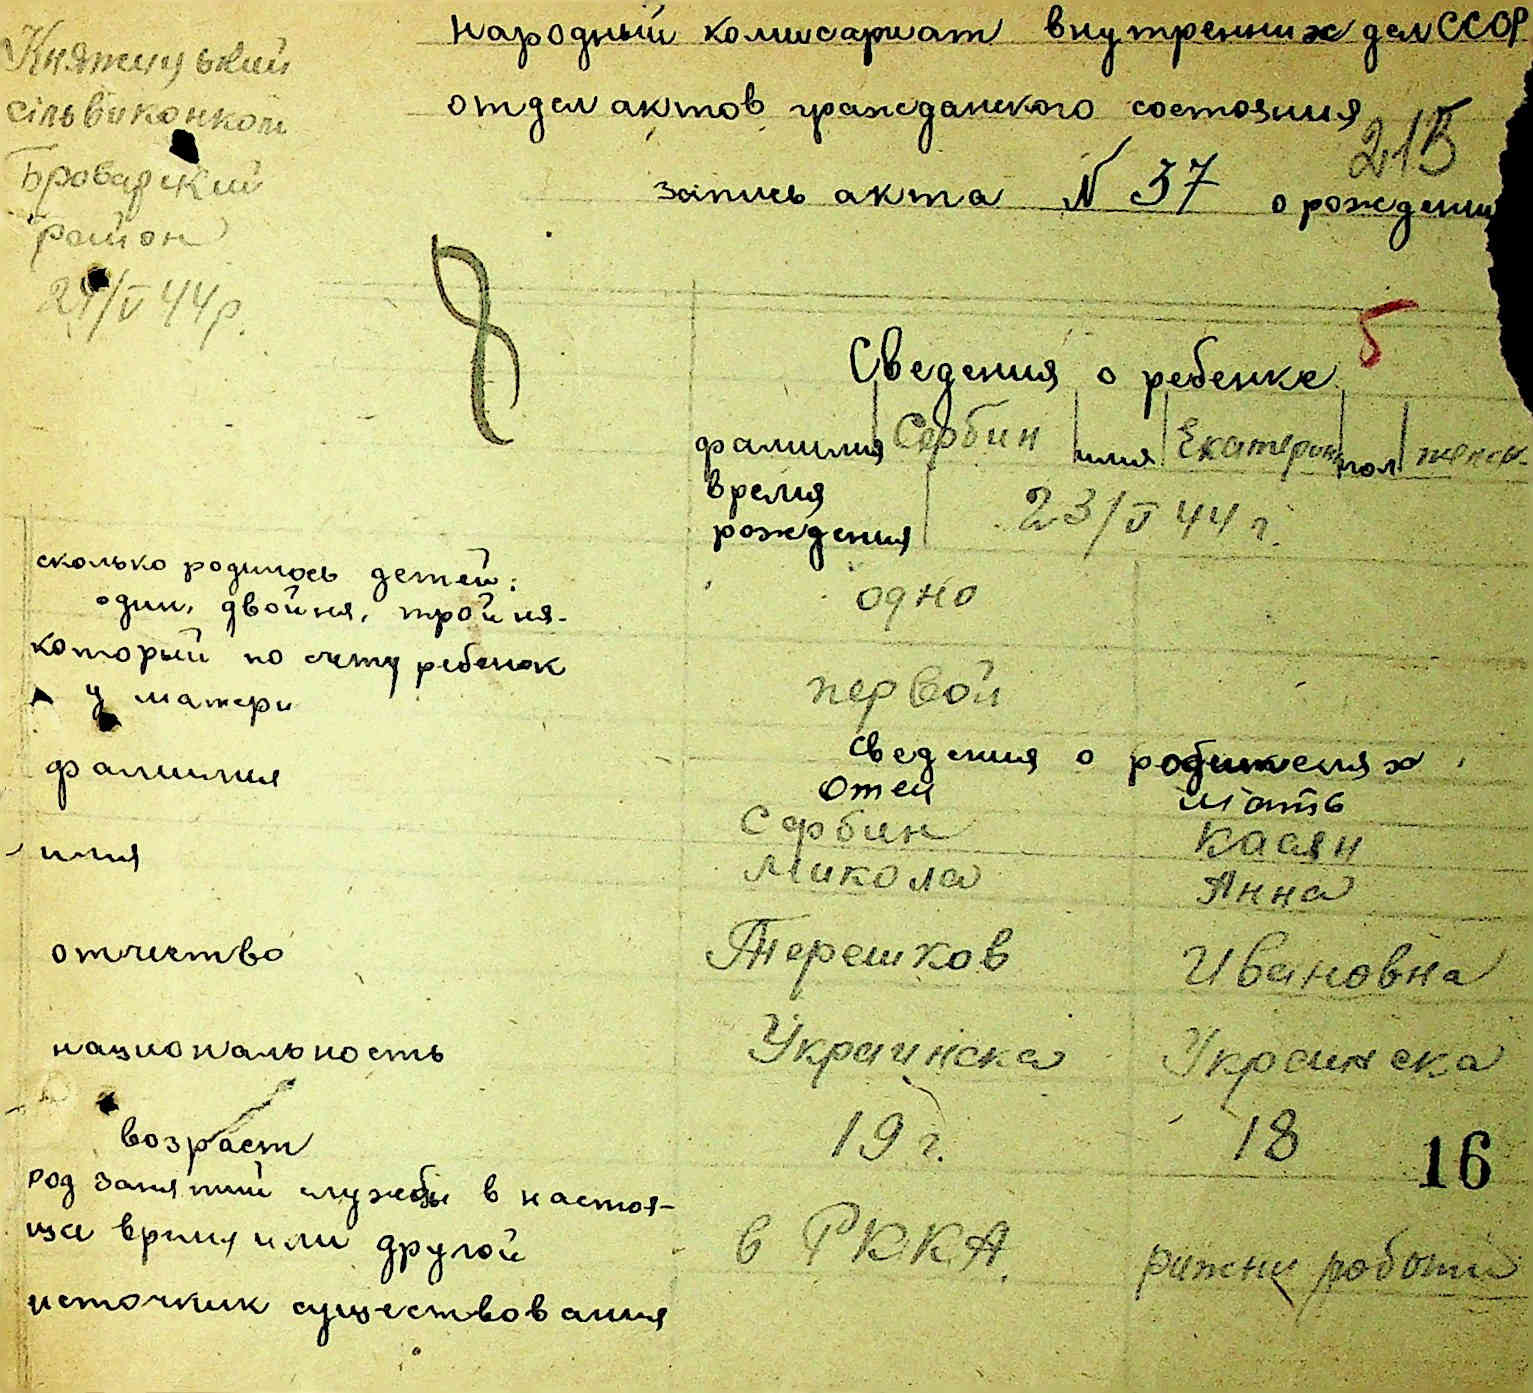 народный комисариат внутренних дел СССР
отдел актов гражданского состояния
21в
запись акта N 37 о рождении
Княжицький
сільвиконком
Броварский
район
24/V 44 р.
8
5
Сведения о ребенке
фамилия Сербин имя Екатерина пол женск.
время
рождения 23/V 44 г.
сколько родилось детей:
один, двойня, тройня- одно
который по счету ребенок
у матери первой
сведения о родителях
фамилия
отец мать
Сербин Касян
имя Микола Анна
отчество Терешков Ивановна
национальность Украинска Украинска
возраст 19 г. 18
16
род занятий службы в настоя-
ще время или другой в РККА. рижни роботи
источник существования